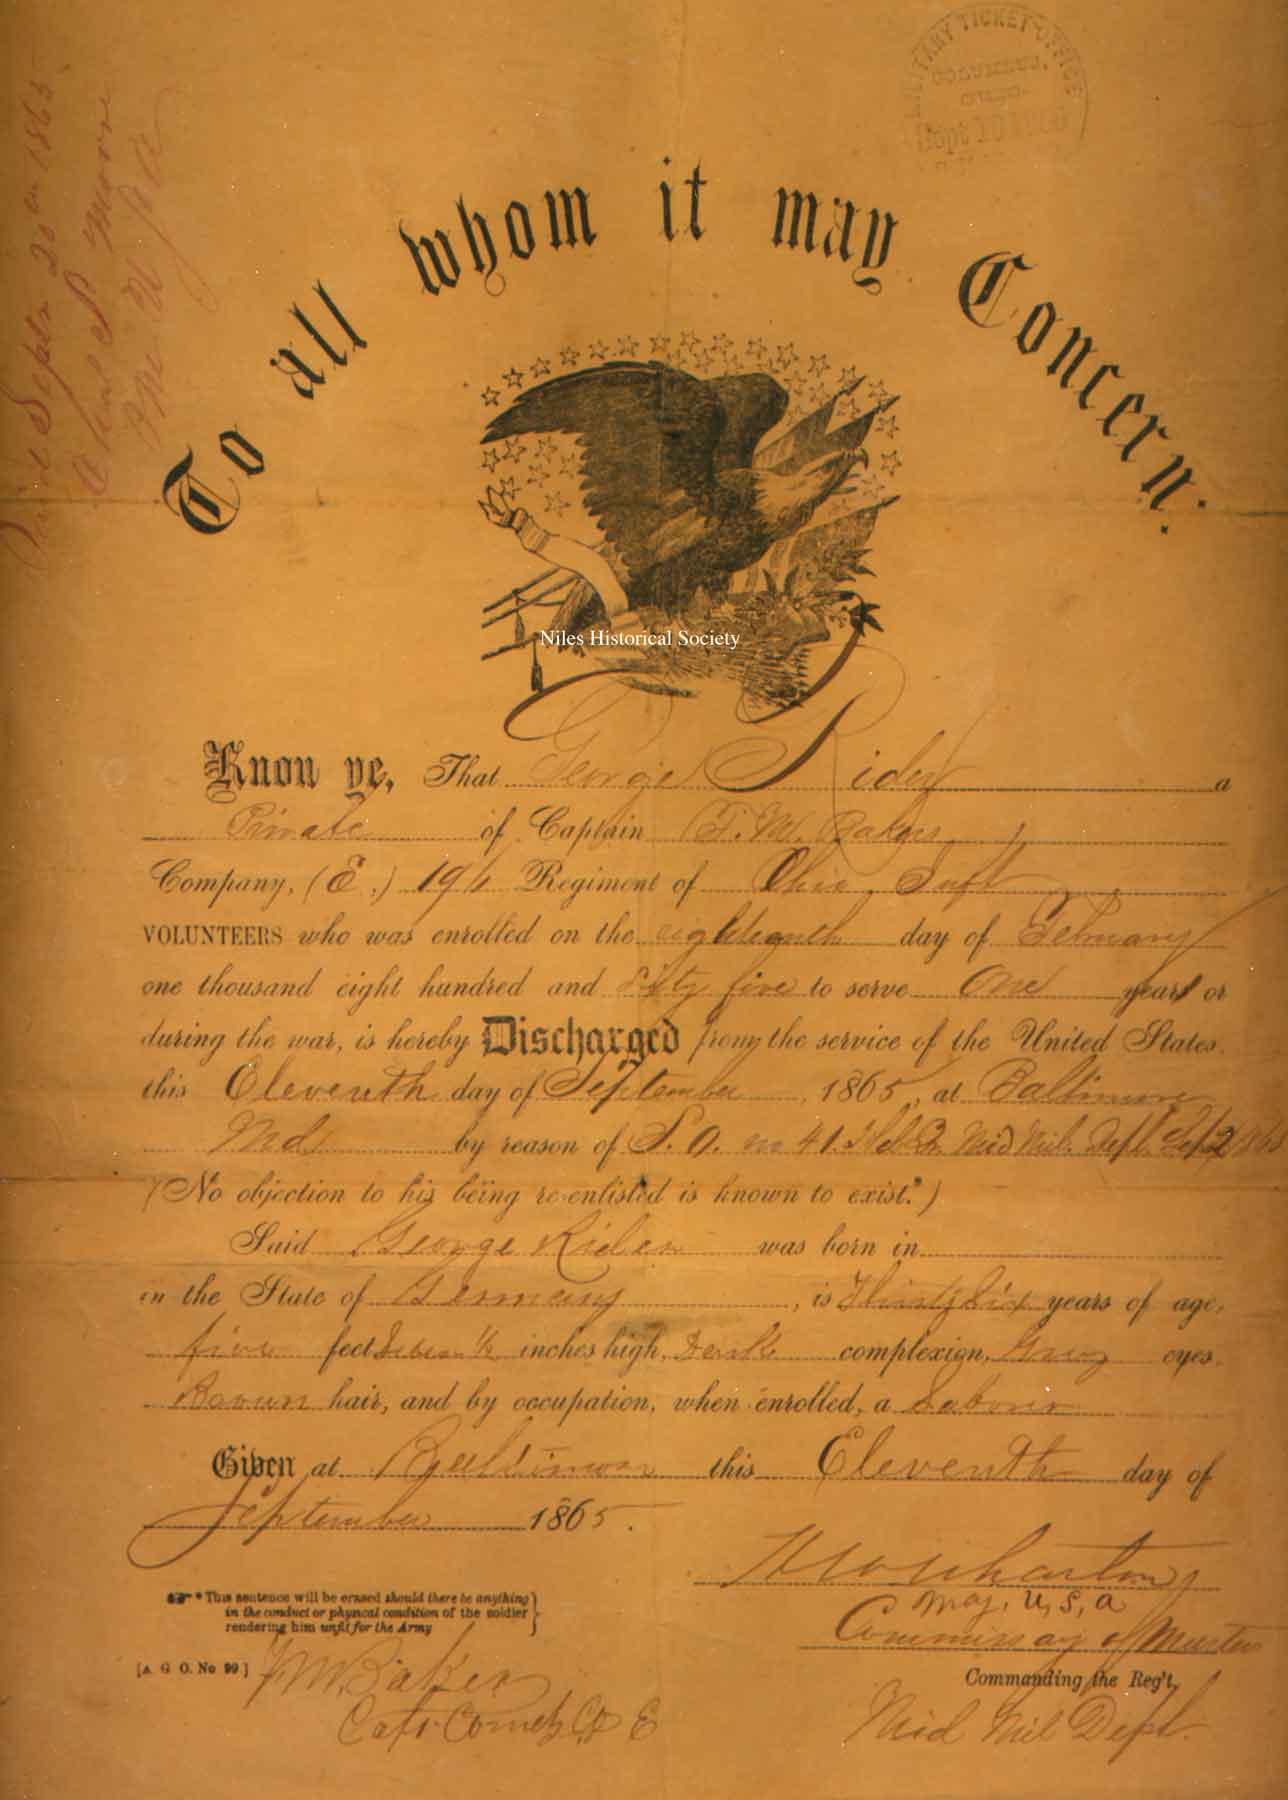 MILITARY TICKET OFFICE
COLUMBUS,
OHIO.
Sept
Sept 20 1865
To all whom it may Concern.
Niles Historical Society
Know ye, That George Rider a
Private of Captain F. W. Bakers
Company, (E.) 196 Regiment of Ohio Inft
VOLUNTEERS who was enrolled on the eighteenth day of February
one thousand eight hundred and Sixty five to serve One years or
during the war, is hereby Discharged from the service of the United States
this Eleventh day of September, 1865, at Baltimore
Md by reason of S. O. no 41. Hd Qr Mid Mil. Dept. Sept 2 1865
(No objection to his being re-enlisted is known to exist.*)
Said George Rider was born in
in the State of Germany, is Thirty Six years of age,
five feet Seven ½ inches high, Dark complexion, Grey eyes,
Brown hair, and by occupation, when enrolled, a Laborer
Given at Baltimore this Eleventh day of
September 1865.
Wharton
Maj. U, S, A
Commissary of Musters
Commanding the Reg't,
Mid Mil Dept.
* This sentence will be erased should there be anything
in the conduct or physical condition of the soldier
rendering him unfit for the Army
[A. G. O. No 99]
F W Baker
Capt. Comdg Co E